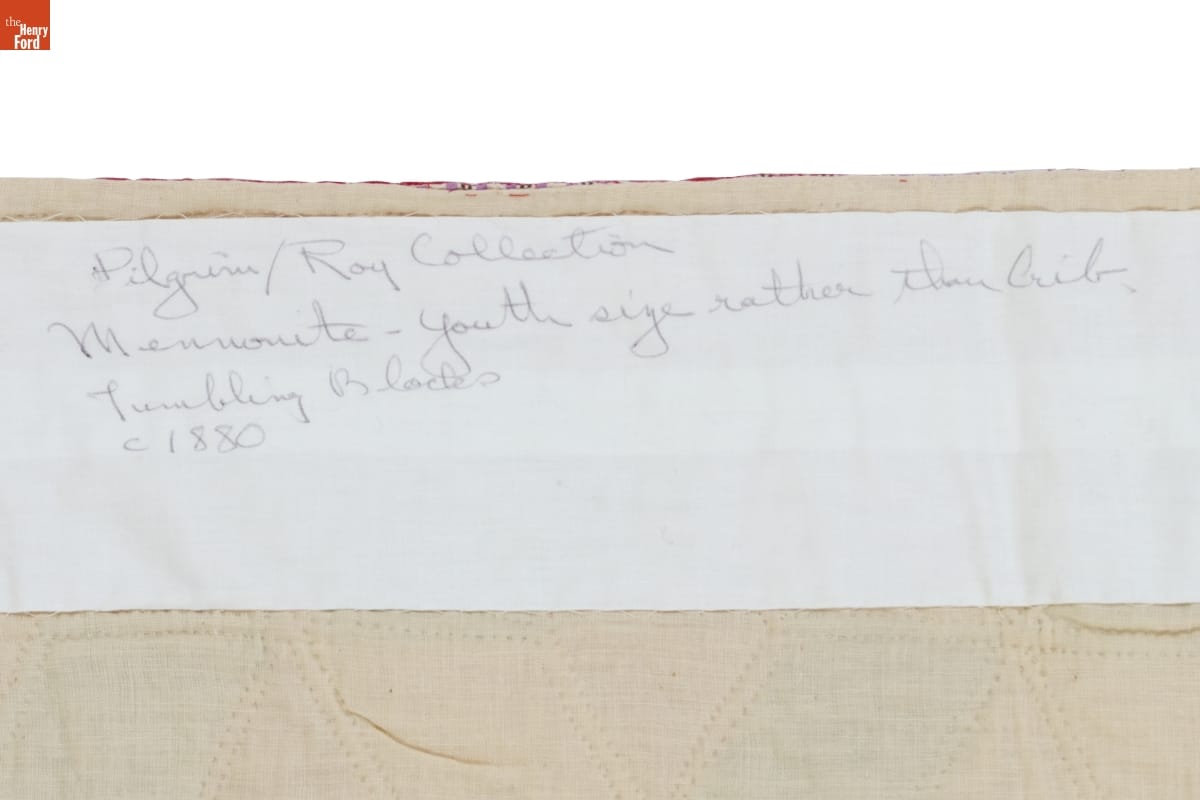 the
Henry
Ford
Pilgrim/Roy Collection
Mennonite - Youth size rather than Crib.
Tumbling Blocks
c 1880